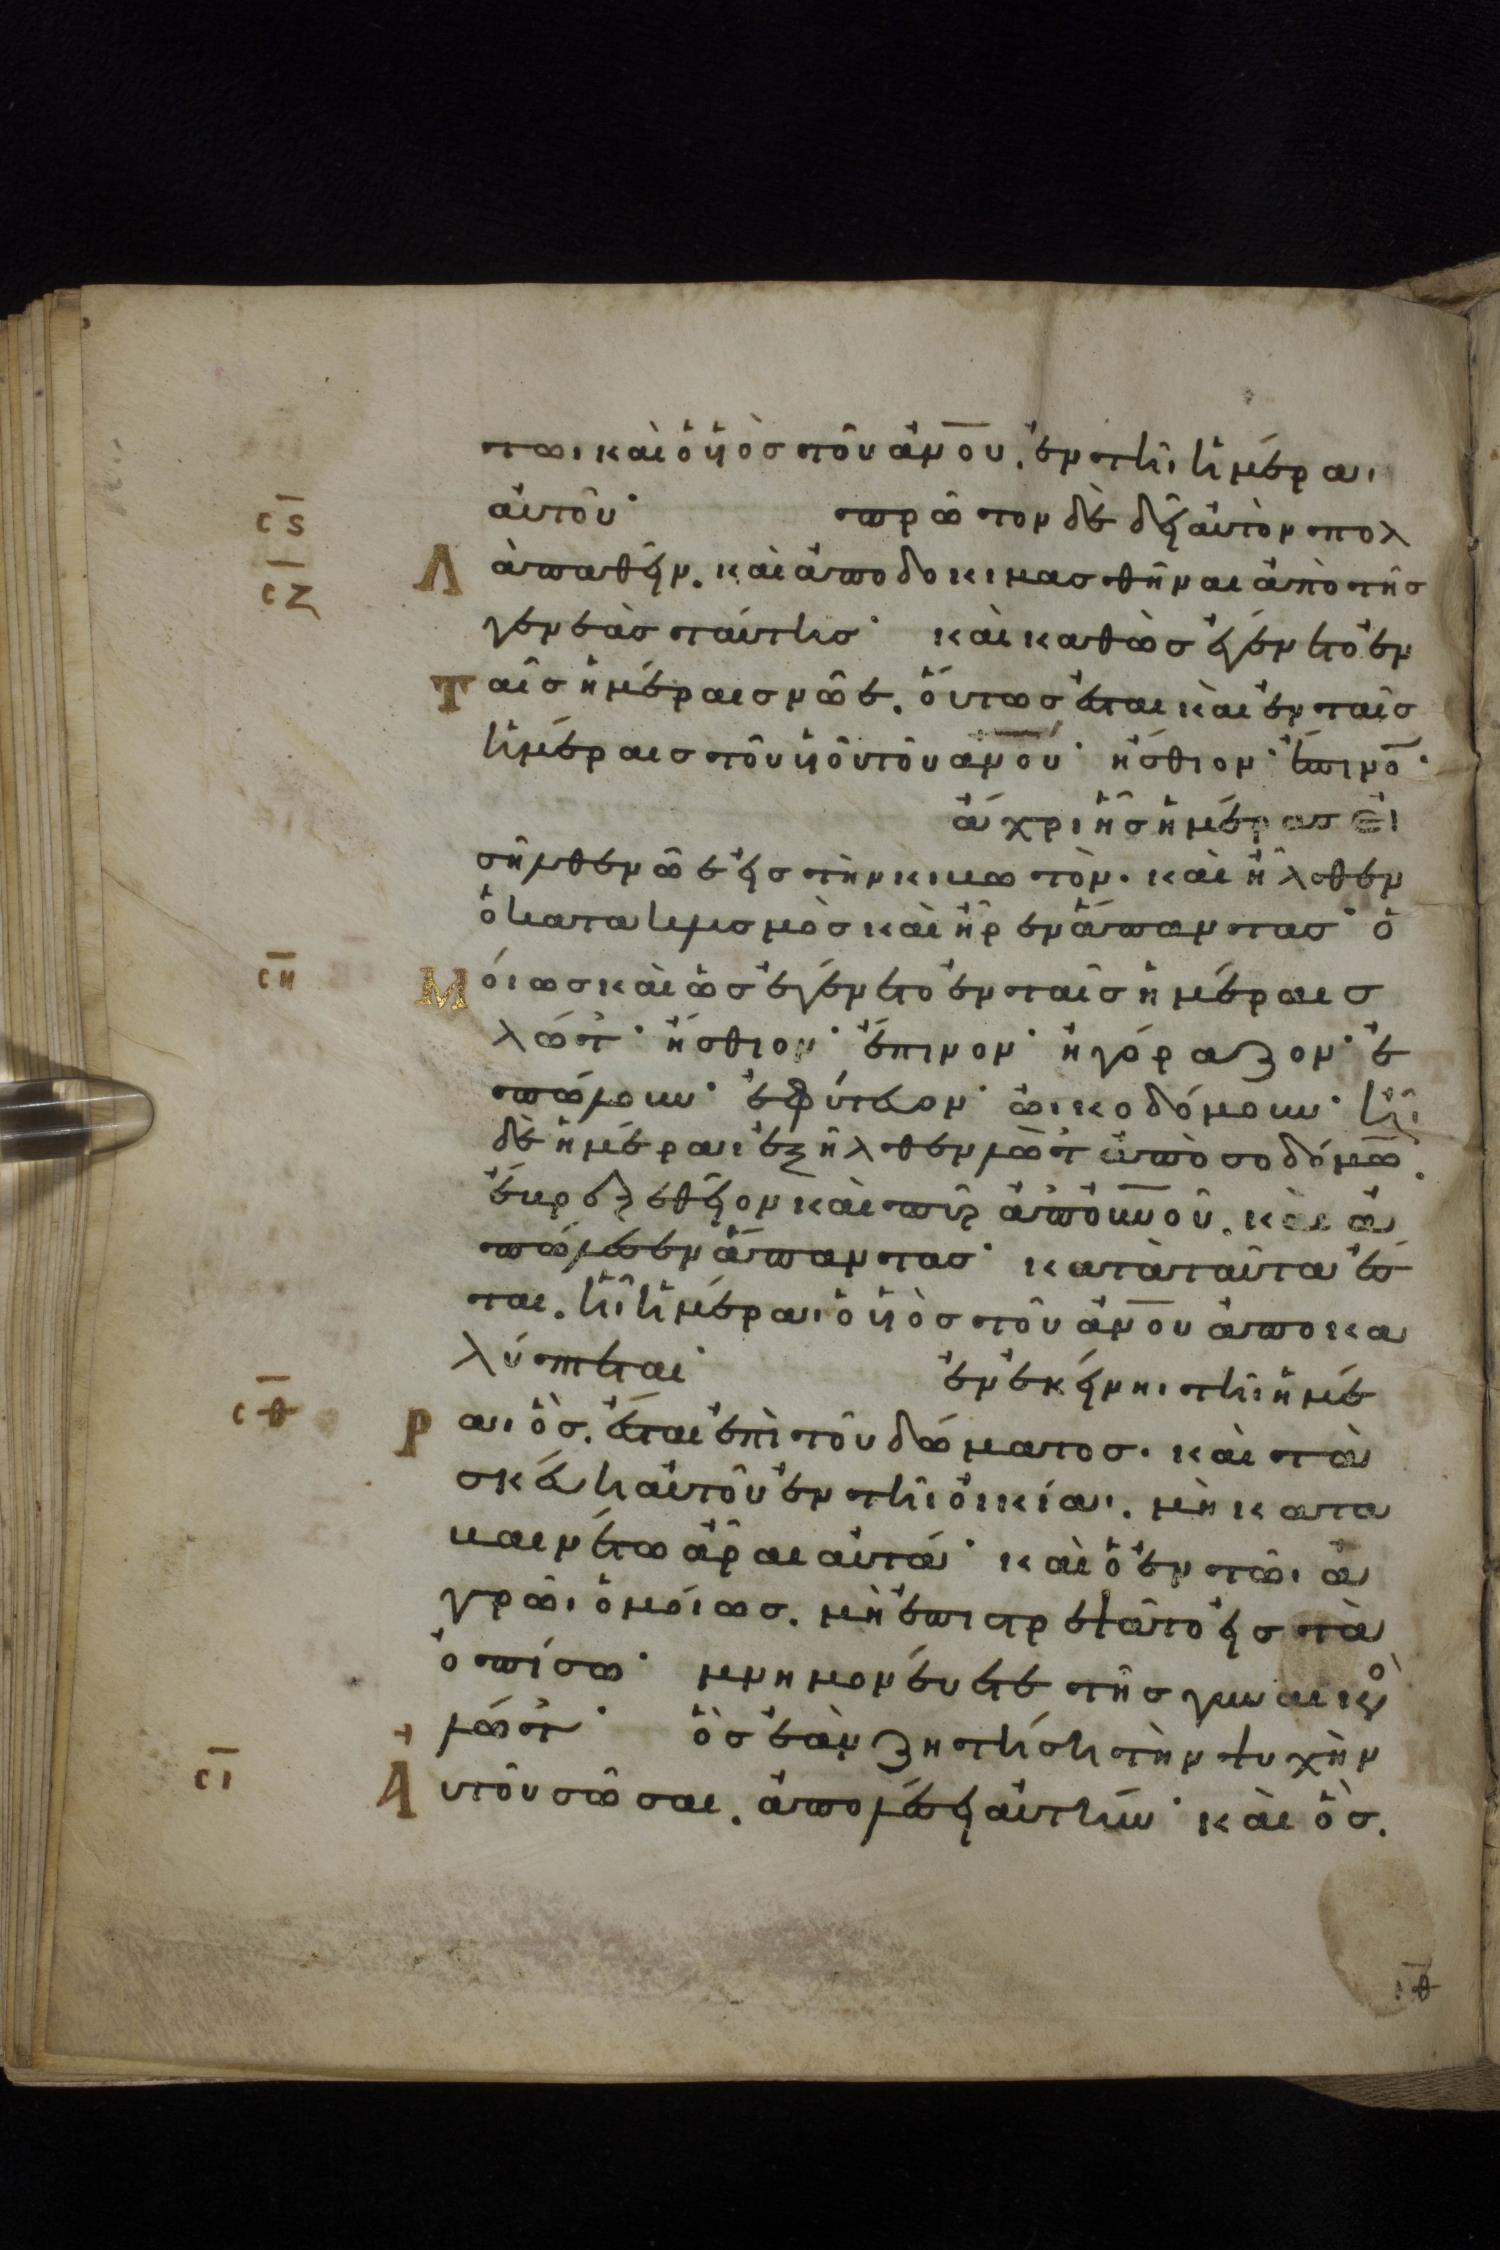 σται καὶ ὁ υἱὸς τοῦ ἀν̅ο̅υ̅. ἐν τῆι ἡμέραι
αὐτοῦ· πρῶτον δὲ δεῖ αὐτὸν πολ
cς̅
λὰ παθεῖν. καὶ ἀποδοκιμασθῆναι ἀπὸ τῆς
cζ̅
γενεᾶς ταύτης· καὶ καθὼς ἐγένετο ἐν
ταῖς ἡμέραις νῶε. οὕτως ἔσται καὶ ἐν ταῖς
ἡμέραις τοῦ υἱοῦ τοῦ ἀν̅ο̅υ̅· ἤσθιον· ἔπινο̅·
ἄχρι ἧς ἡμέρας εἰ
σῆλθεν νῶε εἰς τὴν κιβωτὸν. καὶ ἦλθεν
ὁ κατακλυσμὸς καὶ ἦρεν ἅπαντας· ὁ
cη̅
μοίως καὶ ὡς ἐγένετο ἐν ταῖς ἡμέραις
λώτ· ἤσθιον· ἔπινον· ἠγόραζον· ἐ
πώλουν· ἐφύτευον· ὠικοδόμουν· ἧι
δὲ ἡμέραι ἐξῆλθεν λὼτ ἀπὸ σοδόμω̅.
ἔβρεξε θεῖον καὶ πῦρ ἀπ' ου̅ν̅οῦ. καὶ ἀ
πώλεσεν ἅπαντας· κατὰ ταῦτα ἔσ
ται. ἧι ἡμέραι ὁ υἱὸς τοῦ ἀν̅ο̅υ̅ ἀποκα
λύπτεται· ἐν ἐκείνηι τῆι ἡμέ
cθ̅
ραι ὃς. ἔσται ἐπὶ τοῦ δώματος. καὶ τὰ
σκεύη αὐτοῦ ἐν τῆι οἰκίαι. μὴ κατα
βαινέτω ἆραι αὐτά· καὶ ὁ ἐν τῶι ἀ
γρῶι ὁμοίως. μὴ ἐπιστρεψάτο εἰς τὰ
ὀπίσω· μνημονεύετε τῆς γυναικὸ
λώτ· ὃς ἐὰν ζητήση τὴν ψυχὴν
cι̅
αὐτοῦ σῶσαι. ἀπολέσει αὐτήν· καὶ ὃς.
ιθ̅